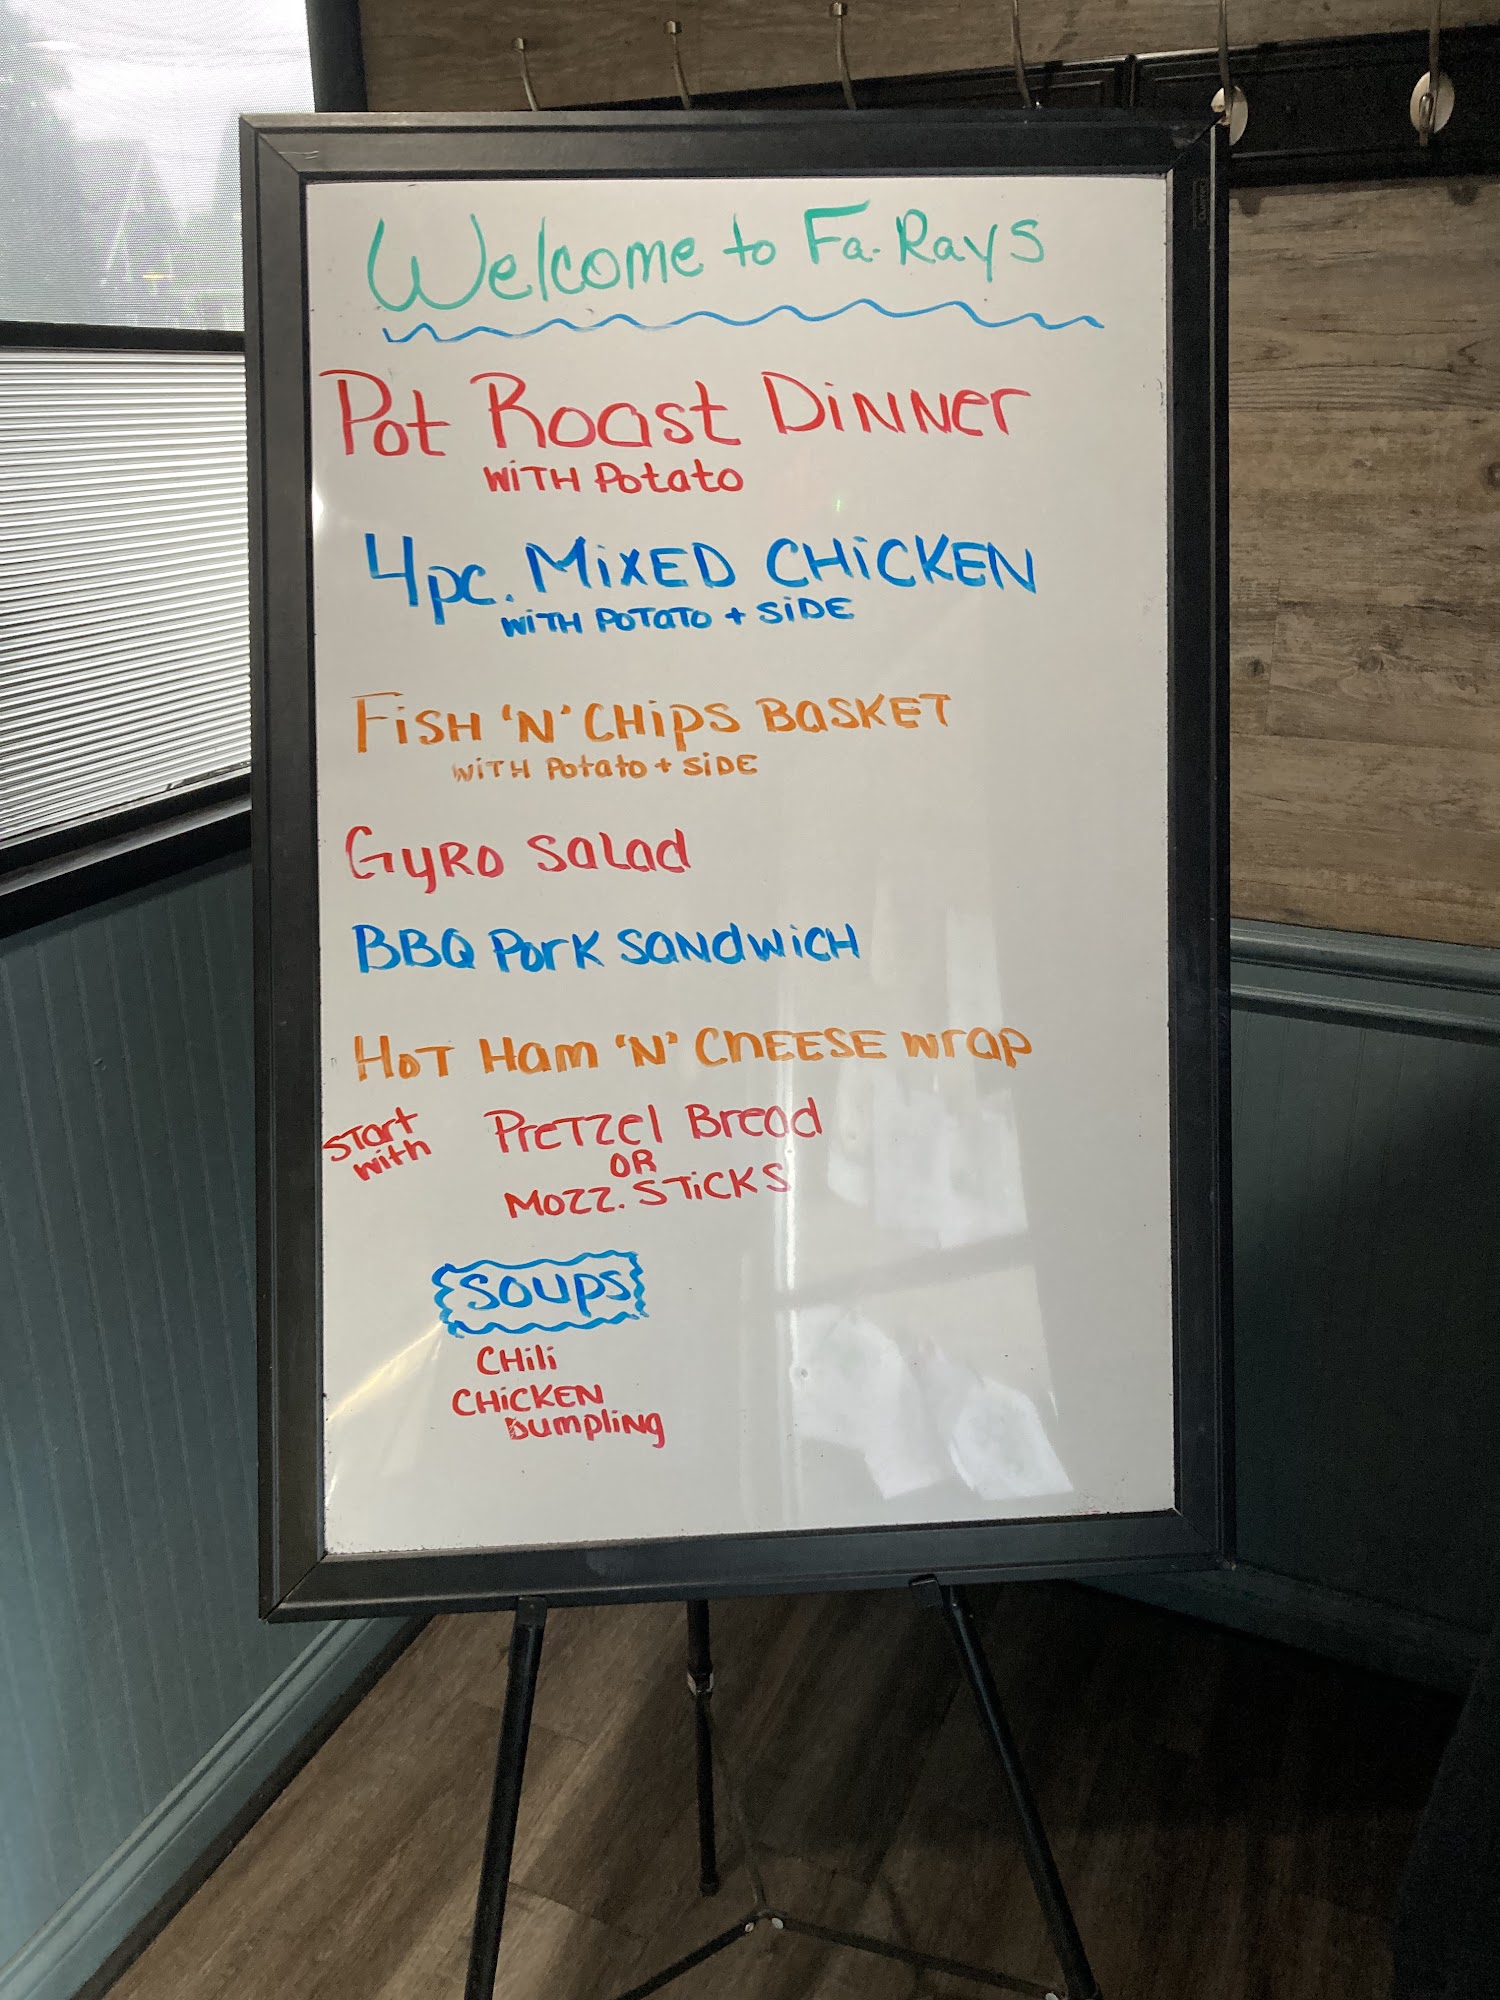 Welcome to Fa-Rays
Pot Roast Dinner
WITH Potato
4pc. MIXED CHICKEN
WITH POTATO + SIDE
FISH 'N' CHIPS BASKET
WITH Potato + SIDE
GYRO SALAD
BBQ Pork SANDWICH
HOT Ham 'N' CHEESE wrap
START with
Pretzel Bread
OR
MOZZ. STICKS
SOUPS
CHili
CHICKEN
Dumpling